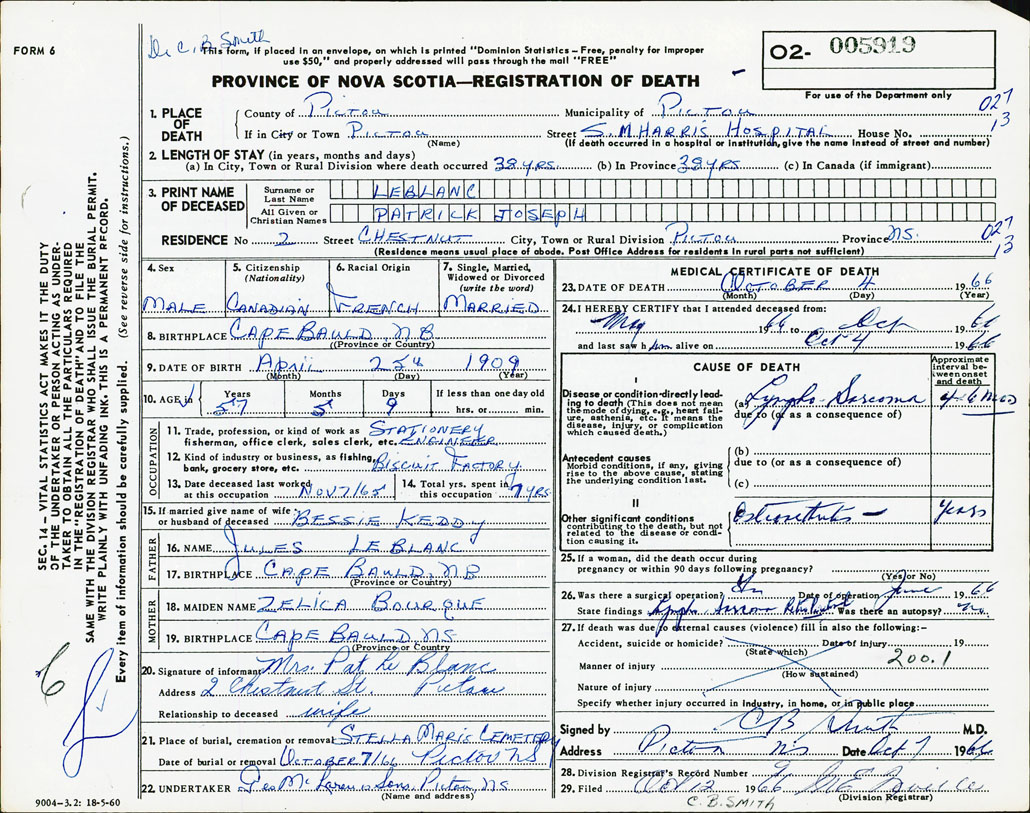 FORM 6
Dr C. B Smith
This form, if placed in an envelope, on which is printed "Dominion Statistics – Free, penalty for improper
use $50," and properly addressed will pass through the mail "FREE"
PROVINCE OF NOVA SCOTIA—REGISTRATION OF DEATH
02- 005919
For use of the Department only
1. PLACE OF DEATH
County of PICTOU Municipality of PICTOU 027
If in City or Town PICTOU Street S. M HARRIS HOSPITAL House No. 13
(Name) (If death occurred in a hospital or institution, give the name instead of street and number)
2. LENGTH OF STAY (in years, months and days)
(a) In City, Town or Rural Division where death occurred 38 yrs. (b) In Province 38 yrs (c) In Canada (if immigrant)
3. PRINT NAME OF DECEASED
Surname or Last Name LEBLANC
All Given or Christian Names PATRICK JOSEPH
RESIDENCE No 2 Street CHESTNUT City, Town or Rural Division PICTOU Province N.S. 027 13
(Residence means usual place of abode. Post Office Address for residents in rural parts not sufficient)
4. Sex MALE
5. Citizenship (Nationality) CANADIAN
6. Racial Origin FRENCH
7. Single, Married, Widowed or Divorced (write the word) MARRIED
8. BIRTHPLACE CAPE BAULD, N B
(Province or Country)
9. DATE OF BIRTH April 25th 1909
(Month) (Day) (Year)
10. AGE in Years 57 Months 5 Days 9 If less than one day old hrs. or min.
OCCUPATION
11. Trade, profession, or kind of work as fisherman, office clerk, sales clerk, etc. STATIONERY ENGINEER
12. Kind of industry or business, as fishing, bank, grocery store, etc. BISCUIT FACTORY
13. Date deceased last worked at this occupation NOV 7/65
14. Total yrs. spent in this occupation 7 YRS
15. If married give name of wife or husband of deceased BESSIE KEDDY
FATHER
16. NAME JULES LEBLANC
17. BIRTHPLACE CAPE BAULD, NB
(Province or Country)
MOTHER
18. MAIDEN NAME ZELICA BOURQUE
19. BIRTHPLACE CAPE BAULD, NS
(Province or Country)
20. Signature of informant Mrs. Pat Le Blanc
Address 2 Chestnut St. Pictou
Relationship to deceased wife
21. Place of burial, cremation or removal STELLA MARIS CEMETERY
Date of burial or removal OCTOBER 7/66 PICTOU NS
22. UNDERTAKER Geo McLaren & Sons, Pictou, NS
(Name and address)
MEDICAL CERTIFICATE OF DEATH
23. DATE OF DEATH OCTOBER 4 1966
(Month) (Day) (Year)
24. I HEREBY CERTIFY that I attended deceased from:
May 1966 to Oct 1966
and last saw him alive on Oct 4 1966
CAUSE OF DEATH
Approximate interval between onset and death
I
Disease or condition directly leading to death (This does not mean the mode of dying, e.g., heart failure, asthenia, etc. It means the disease, injury, or complication which caused death.)
(a) Lympho-Sarcoma 4-6 mos
due to (or as a consequence of)
Antecedent causes
Morbid conditions, if any, giving rise to the above cause, stating the underlying condition last.
(b)
due to (or as a consequence of)
(c)
II
Other significant conditions contributing to the death, but not related to the disease or condition causing it.
Years
25. If a woman, did the death occur during
pregnancy or within 90 days following pregnancy?
(Yes or No)
26. Was there a surgical operation? Date of operation June 1966
State findings Was there an autopsy? no.
27. If death was due to external causes (violence) fill in also the following:-
Accident, suicide or homicide? Date of injury 19
(State which)
Manner of injury 200.1
(How sustained)
Nature of injury
Specify whether injury occurred in industry, in home, or in public place
Signed by C B Smith M.D.
Address Pictou NS Date Oct 7 1966
28. Division Registrar's Record Number
29. Filed Oct 12 1966
(Division Registrar)
C. B. SMITH
SEC. 14 – VITAL STATISTICS ACT MAKES IT THE DUTY
OF THE UNDERTAKER OR PERSON ACTING AS UNDER-
TAKER TO OBTAIN ALL THE PARTICULARS REQUIRED
IN THE "REGISTRATION OF DEATH" AND TO FILE THE
SAME WITH THE DIVISION REGISTRAR WHO SHALL ISSUE THE BURIAL PERMIT.
WRITE PLAINLY WITH UNFADING INK. THIS IS A PERMANENT RECORD.
Every item of information should be carefully supplied. (See reverse side for instructions.)
6
9004-3.2: 18-5-60